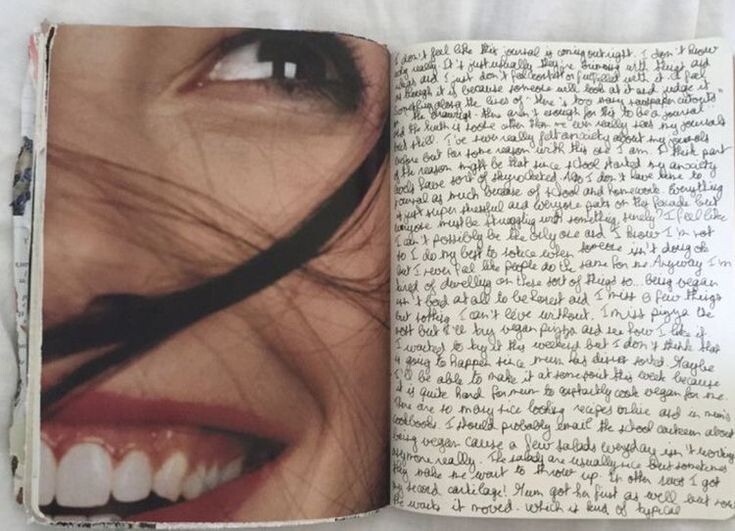 I don't feel like this journal is coming out right. I don't know
why really. It's just usually they're brimming with things and
and I just don't feel or fulfilled with it. I feel
as though it is because someone will look at it and judge it.
Something along the lines of "there's too many newspaper cutouts"
or "the drawings - there aren't enough for this to be a journal"
and the truth is no one other than me even really sees my journals
but still. I've never really felt anxiety about my journals
before but for some reason with this one I am. I think part
of the reason might be that since school started my anxiety
levels have sort of skyrocketed. Also I don't have time to
journal as much because of school and homework. Everything
is just super stressful and everyone puts on this facade but
everyone must be struggling with something, surely? I feel like
I can't possibly be the only one and I know I'm not
so I do my best to notice when someone isn't doing ok
but I never feel like people do the same for me. Anyway I'm
tired of dwelling on these sort of things so... Being vegan
isn't bad at all to be honest and I miss a few things
but nothing I can't live without. I miss pizza the
most but I'll try vegan pizza and see how I like it
I wanted to try it this weekend but I don't think that
is going to happen since mum has dinner sorted. Maybe
I'll be able to make it at some point this week because
it is quite hard for mum to cook vegan for me.
There are so many nice looking recipes online and in mum's
cookbooks. I should probably email the school canteen about
being vegan cause a few salads everyday isn't working
anymore really. The salads are usually nice but sometimes
they make me want to throw up. In other news I got
my second cartilage! Mum got her first as well but now
she wants it moved. which is kind of typical